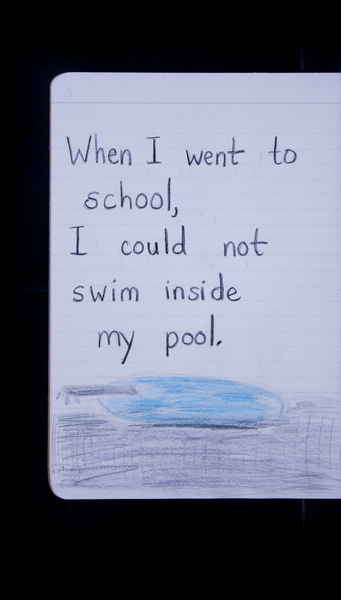 When I went to
school,
I could not
swim inside
my pool.